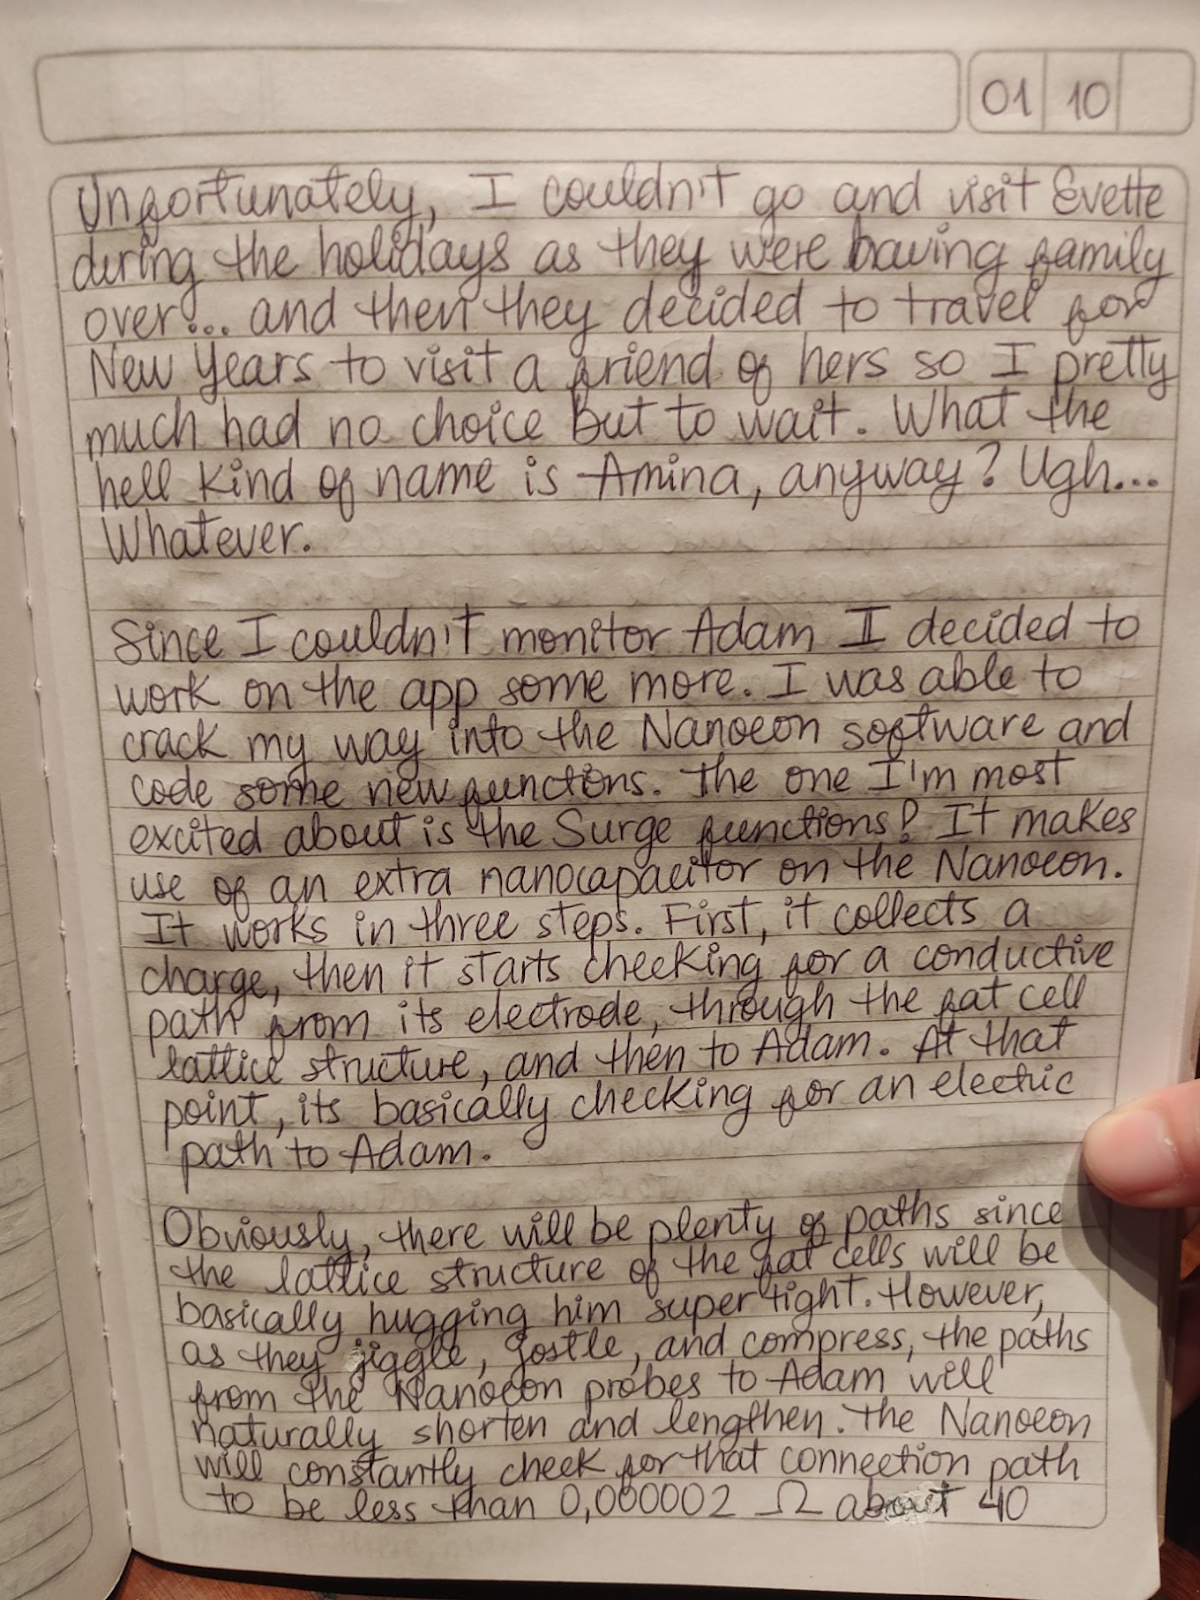 01 10
Unfortunately, I couldn't go and visit Evette
during the holidays as they were having family
over... and then they decided to travel for
New Years to visit a friend of hers so I pretty
much had no choice but to wait. What the
hell kind of name is Amina, anyway? Ugh...
Whatever.
Since I couldn't monitor Adam I decided to
work on the app some more. I was able to
crack my way into the Nanoeon software and
code some new functions. The one I'm most
excited about is the Surge functions! It makes
use of an extra nanocapacitor on the Nanoeon.
It works in three steps. First, it collects a
charge, then it starts checking for a conductive
path from its electrode, through the fat cell
lattice structure, and then to Adam. At that
point, its basically checking for an electric
path to Adam.
Obviously, there will be plenty of paths since
the lattice structure of the fat cells will be
basically hugging him super tight. However,
as they jiggle, jostle, and compress, the paths
from the Nanoeon probes to Adam will
naturally shorten and lengthen. The Nanoeon
will constantly check for that connection path
to be less than 0,000002 Ω about 40